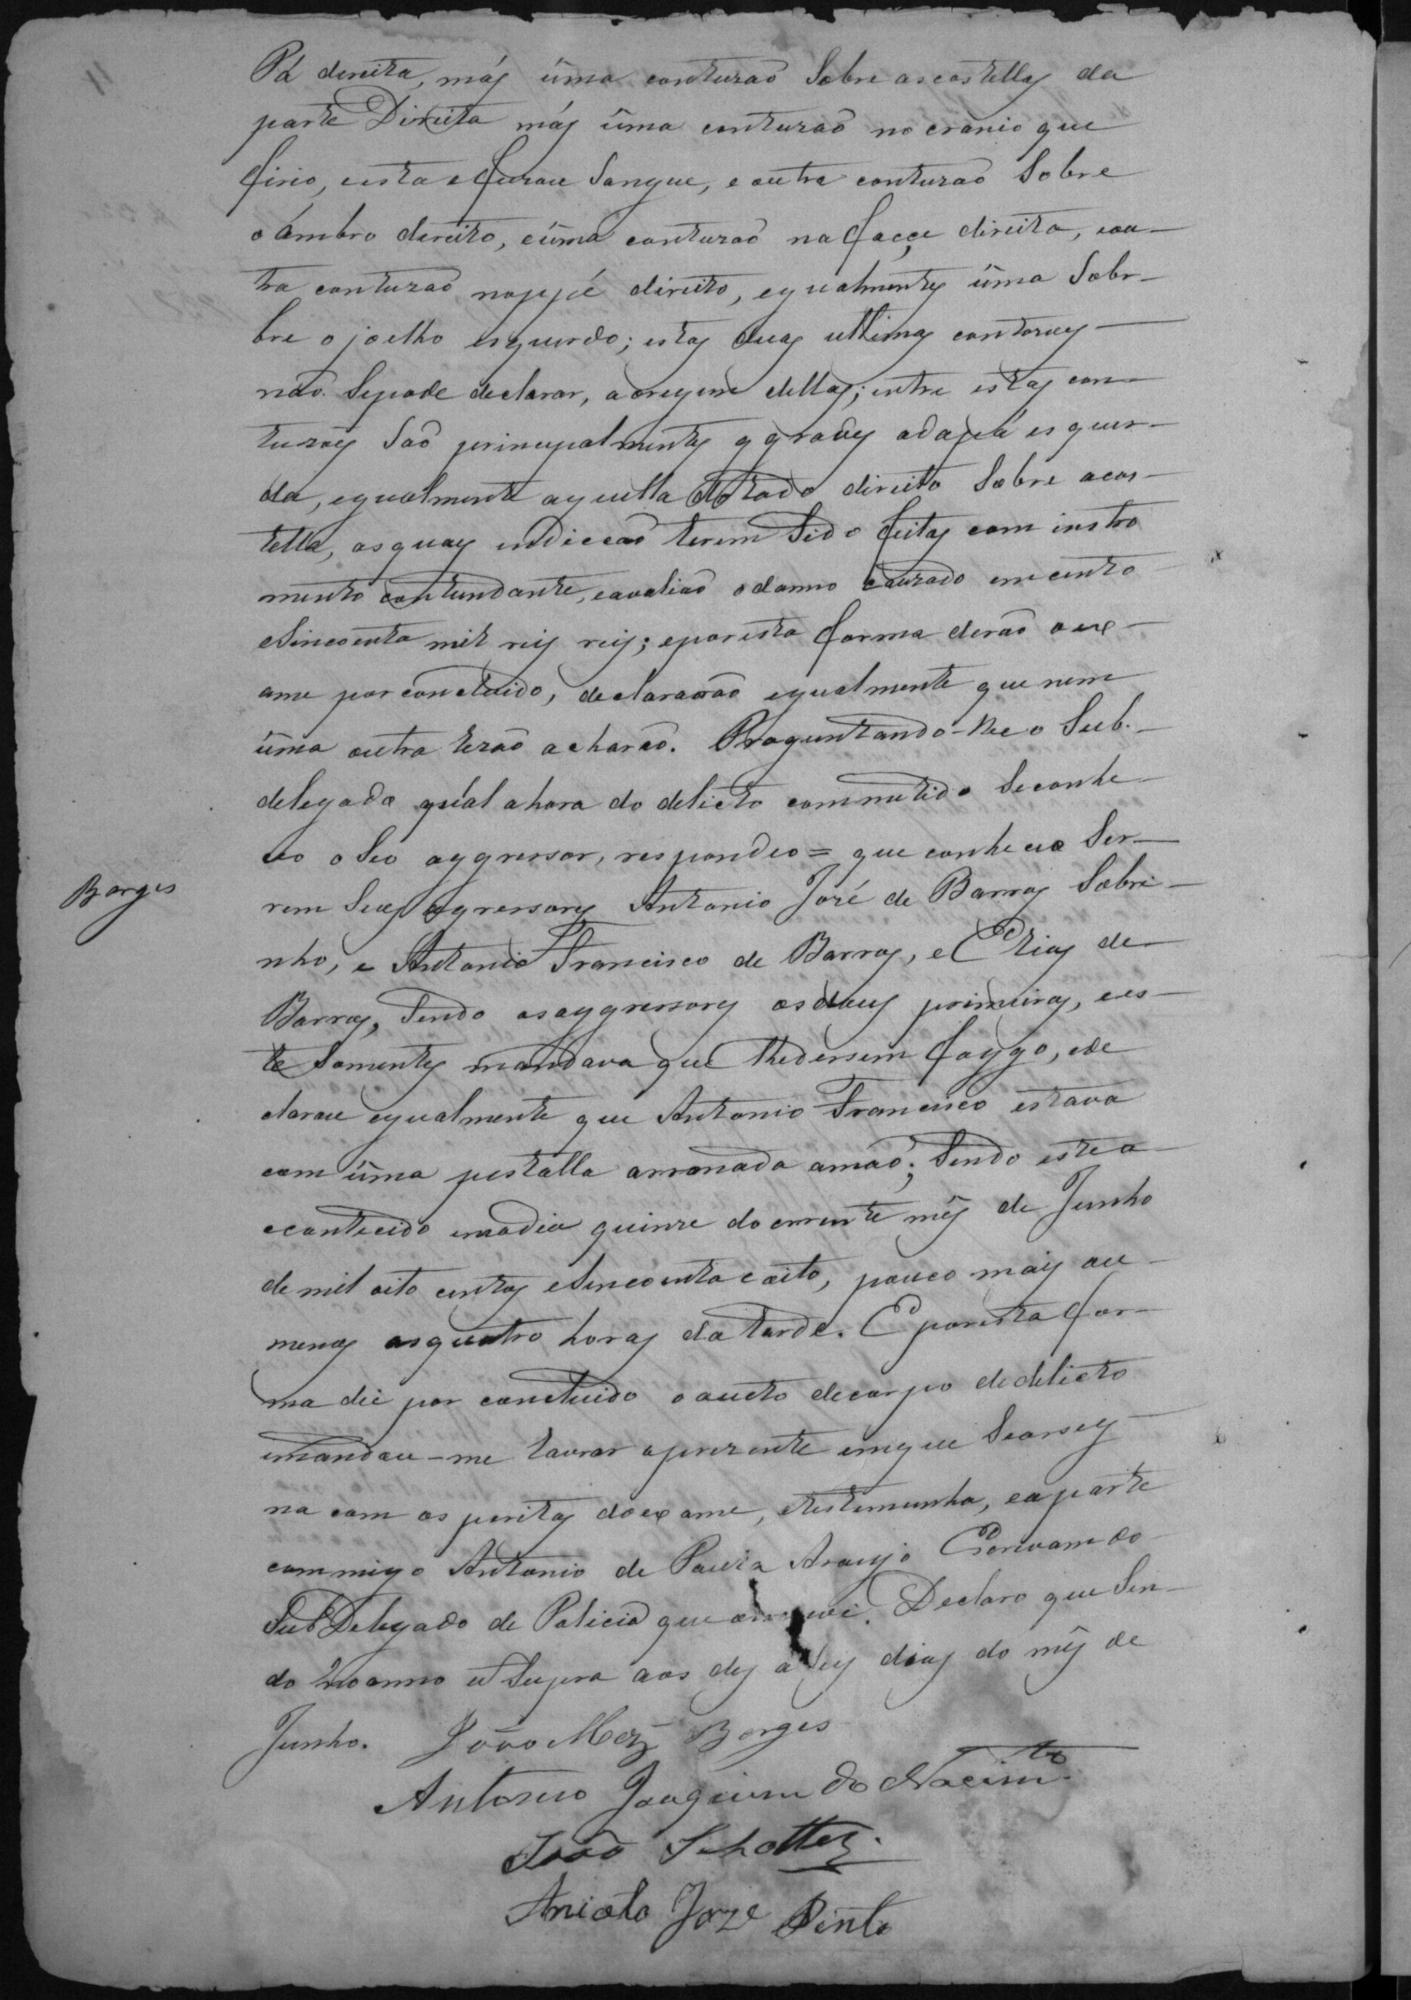 Pá direita, más úma contuzaõ Sobre as costellas da
parte Direita más úma contuzaõ no cranio que
firio, esta e furou Sangue, e outra contuzaõ Sobre
o ámbro direito, e úma contuzaõ na facçe direita, e ou-
tra contuzaõ no ppé direito, egualmentes úma Sobr-
bre o joelho esquerdo; estas duas ultimas contozues
naõ Se pode declarar, a oregem dellas; entre estas con-
tuzoes Saõ principalmentes ggraves a da pá esquer-
da, egualmente aquella do lado direito Sobre a cos-
tella, as quaes endiccaõ terem Sido feitas com instro
mento contundante, e avaliaõ o danno cauzado em cento
e Sincoenta mil reis reis; e por esta forma deraõ o ex-
ame por concluido, declararaõ egualmente que nem
úma outra lezaõ acharaõ. Preguntando-lhe o Sub.-
delegado qúal a hora do delicto commetido Se conhe-
ceo o Seo aggressor, respondeo = que conheceo Ser-
Borges
rem Seus agressores Antonio José de Barros Sobri-
nho, e Antonio Francisco de Barros, e Elias de
Barros, Sendo os aggressores os dous primeiros, e es-
te Somentes mandava que lhe dessem foggo, e de
clarou egualmente que Antonio Francisco estava
com úma pistolla armada a maõ; Sendo este a-
econtecido no dia quinze do corrente mês de Junho
de mil oito centos e Sincoenta e oito, pouco mais ou
menos as quatro horas da tarde. E por esta for-
ma die por concluido o aucto de corpo de delicto
e mandou-me lavrar o prezente em que Se assig-
na com os peritos do exame, e testemunha, e a parte
commigo Antonio de Paula Araujo Escrivam do
Sub Delegado de Policia que escrevi. Declaro que Sen-
do no anno ut Supra aos des a Seis dias do mês de
Junho. João Mez Borges
Antonio Joaquim do Nacimto.
João Schatter
Aniceto Joze Pinto